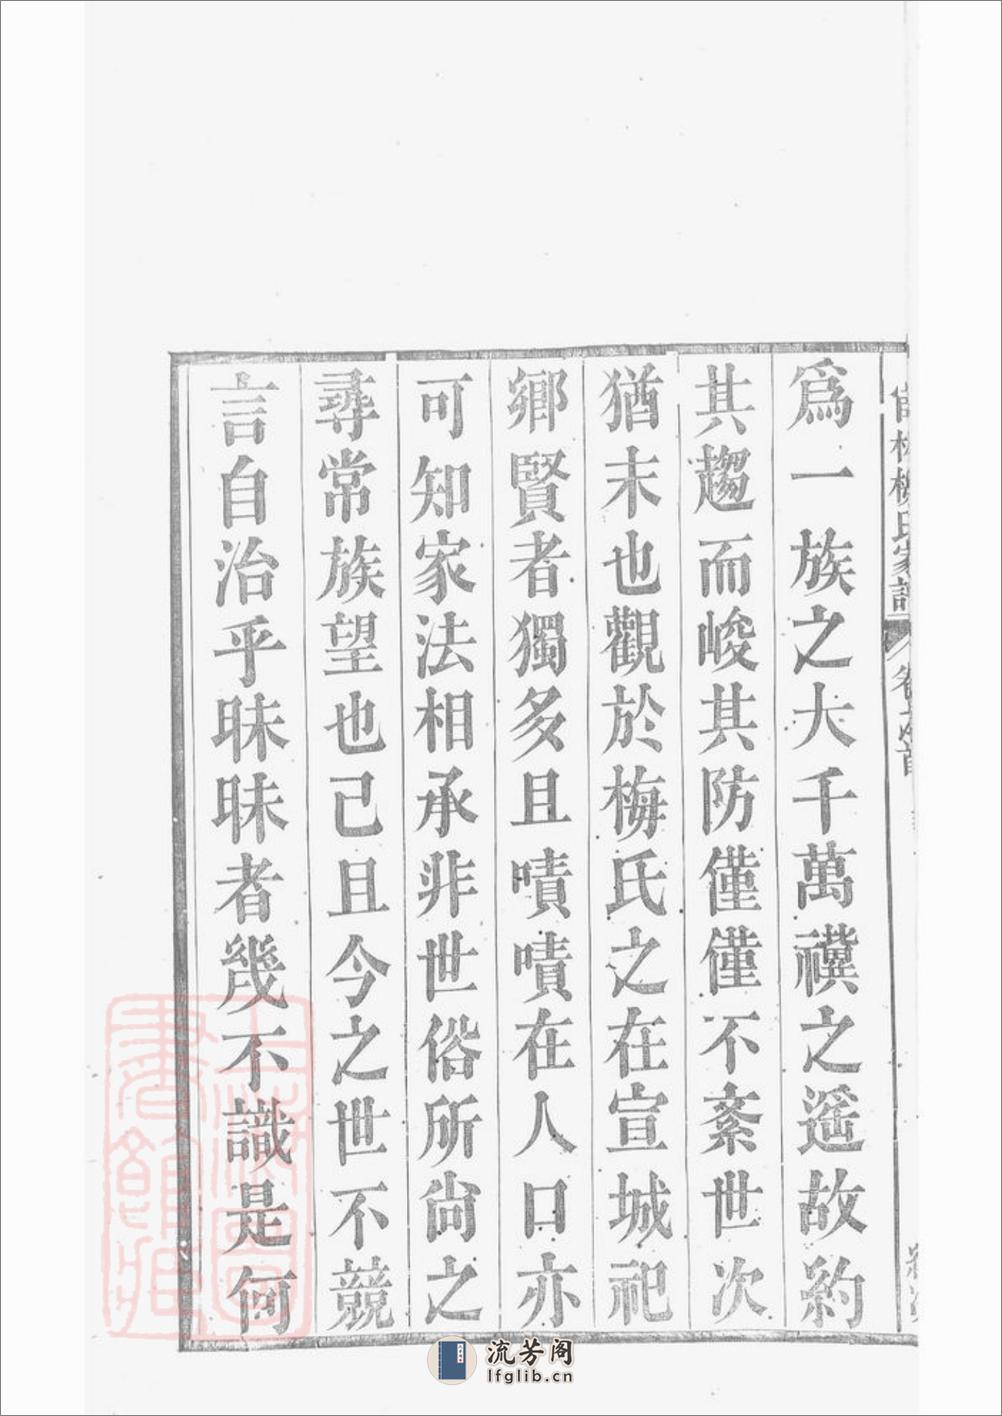 爲一族之大千萬禩之遥故約
其趨而峻其防僅僅不紊世次
猶末也觀於梅氏之在宣城祀
鄉賢者獨多且嘖嘖在人口亦
可知家法相承非世俗所尙之
尋常族望也已且今之世不競
言自治乎昧昧者幾不識是何
流芳阁
lfglib.cn